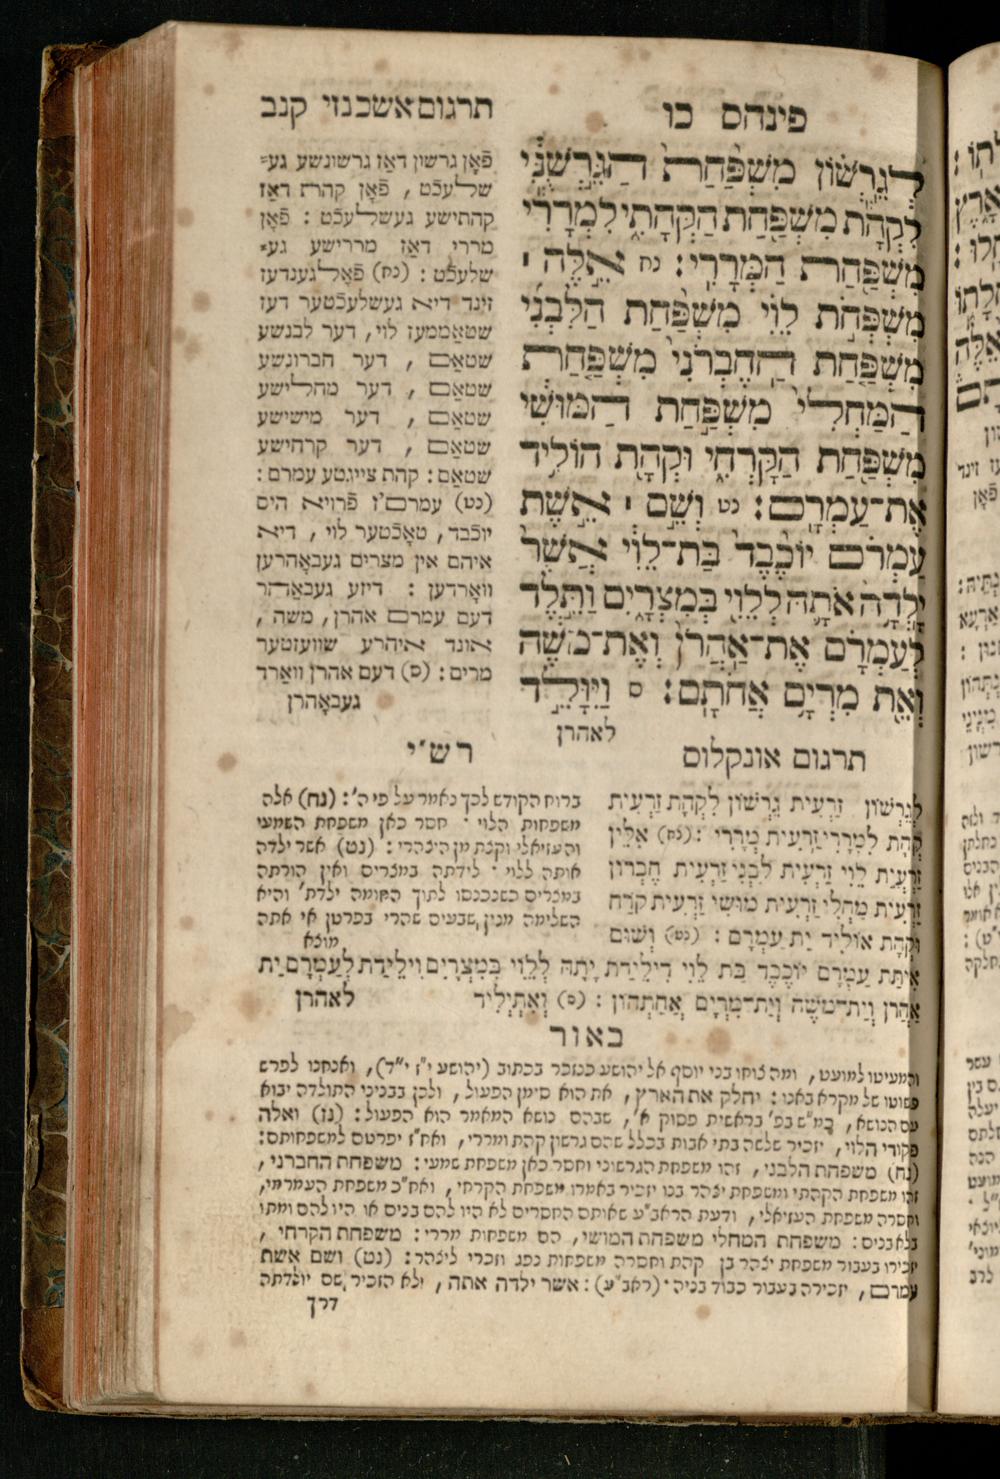 פינהס כו
תרגום אשכנזי קנב
לְגֵרְשׁוֹן מִשְׁפַּחַת הַגֵּרְשֻׁנִּי
לִקְהָת מִשְׁפַּחַת הַקְּהָתִי לִמְרָרִי
מִשְׁפַּחַת הַמְּרָרִי׃ נח אֵלֶּה ׀
מִשְׁפְּחֹת לֵוִי מִשְׁפַּחַת הַלִּבְנִי
מִשְׁפַּחַת הַחֶבְרֹנִי מִשְׁפַּחַת
הַמַּחְלִי מִשְׁפַּחַת הַמּוּשִׁי
מִשְׁפַּחַת הַקָּרְחִי וּקְהָת הוֹלִיד
אֶת־עַמְרָם׃ נט וְשֵׁם ׀ אֵשֶׁת
עַמְרָם יוֹכֶבֶד בַּת־לֵוִי אֲשֶׁר
יָלְדָה אֹתָהּ לְלֵוִי בְּמִצְרָיִם וַתֵּלֶד
לְעַמְרָם אֶת־אַהֲרֹן וְאֶת־מֹשֶׁה
וְאֵת מִרְיָם אֲחֹתָם׃ ס וַיִּוָּלֵד
לאהרן
פֿאָן גרשון דאַז גרשונשע גע=
שלעכֿט , פֿאָן קהת דאַז
קהתישע געשלעכֿט : פֿאָן
מררי דאַז מררישע גע=
שלעכֿט : (נח) פֿאָלגענדע
זינד דיא געשלעכֿטער דעז
שטאַממעז לוי, דער לבנשע
שטאַם , דער חברונשע
שטאַם , דער מחלישע
שטאַם , דער מישישע
שטאַם , דער קרחישע
שטאַם : קהת צייגטע עמרם :
(נט) עמרם'ז פֿרויא היס
יוכֿבד, טאָכֿטער לוי , דיא
איהם אין מצרים געבאָהרען
וואָרדען : דיזע געבאָהר
דעם עמרם אהרן, משה ,
אונד איהרע שוועזטער
מרים : (ס) דעם אהרן וואַרד
געבאָהרן
תרגום אונקלוס
לְגֵרְשׁוֹן זַרְעִית גֵּרְשׁוֹן לִקְהָת זַרְעִית
קְהָת לִמְרָרִי זַרְעִית מְרָרִי : (נח) אִלֵּין
זַרְעֲיַת לֵוִי זַרְעִית לִבְנִי זַרְעִית חֶבְרוֹן
זַרְעִית מַחְלִי זַרְעִית מוּשִׁי זַרְעִית קֹרַח
וּקְהָת אוֹלִיד יָת עַמְרָם : (נט) וְשׁוּם
אִתַּת עַמְרָם יוֹכֶבֶד בַּת לֵוִי דִּילִידַת יָתַהּ לְלֵוִי בְּמִצְרָיִם וִילֵידַת לְעַמְרָם יָת
אַהֲרֹן וְיַת־מֹשֶׁה וְיַת־מִרְיָם אֲחָתְהוֹן : (ס) וְאִתְיְלִיד
לאהרן
רש"י
ברוח הקודש לכך נאמר על פי ה' : (נח) אלה
משפחות הלוי · חסר כאן משפחת השמעי
והעזיאלי וקצת מן היצהרי : (נט) אשר ילדה
אותה ללוי · לידתה במצרים ואין הורתה
במצרים כשנכנסו לתוך החומה ילדת' והיא
השלימה מנין שבעים שהרי בפרטן אי אתה
מוצא
באור
והמעיטו למועט, ומה צוחו בני יוסף אל יהושע כנזכר בכתוב (יהושע י"ז י"ד), ואנחנו לפרש
פשוטו של מקרא באנו : יחלק את הארץ, את הוא סימן הפעול, ולכן בבניני התולדה יבוא
עם הנושא, כמ"ש בפ' בראשית פסוק א', שבהם נושא המאמר הוא הפעול : (נז) ואלה
פקודי הלוי, יזכיר שלשה בתי אבות בכלל שהם גרשון קהת ומררי, ואח"ז יפרטם למשפחותם :
(נח) משפחת הלבני, זהו משפחת הגרשוני וחסר כאן משפחת שמעי : משפחת החברני,
זהו משפחת הקהתי ומשפחת יצהר בנו יזכיר באמרו משפחת הקרחי, ואח"כ משפחת העמרמי,
וחסרה משפחת העזיאלי, ודעת הראב"ע שאותם החסרים לא היו להם בנים או היו להם ומתו
בלא בנים : משפחת המחלי משפחת המושי, הם משפחות מררי : משפחת הקרחי,
יזכירו בעבור משפחת יצהר בן קהת וחסרה משפחות נפג וזכרי ליצהר : (נט) ושם אשת
עמרם, יזכירה בעבור כבוד בניה · (ראב"ע) : אשר ילדה אתה, ולא הזכיר שם יולדתה
דרך